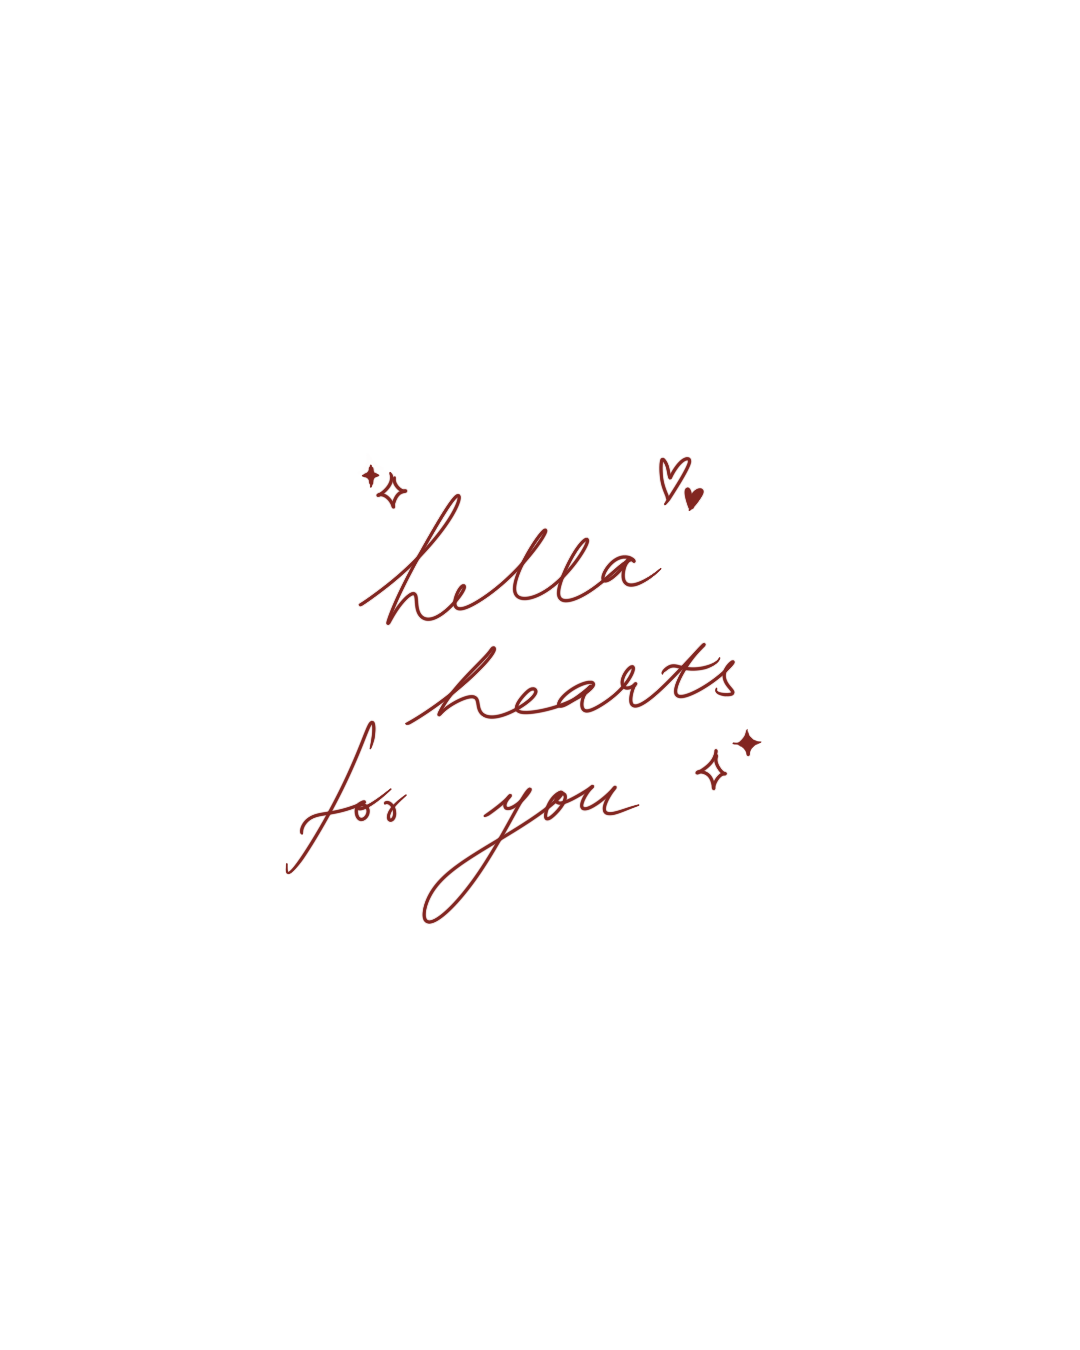 hella
hearts
for you